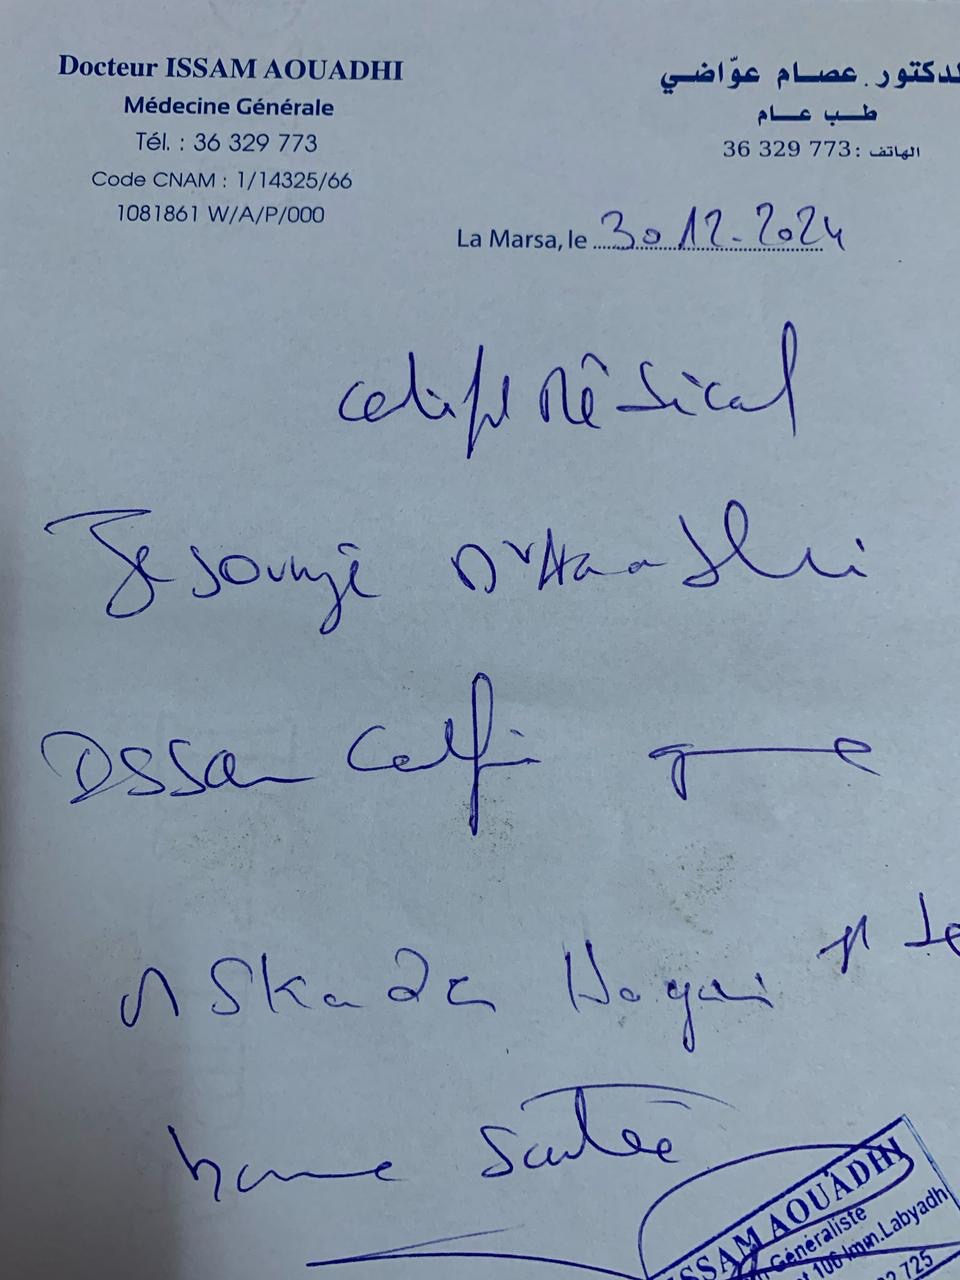 Docteur ISSAM AOUADHI
Médecine Générale
Tél. : 36 329 773
Code CNAM : 1/14325/66
1081861 W/A/P/000
لدكتور. عصام عوّاضي
طب عام
الهاتف: 773 329 36
La Marsa, le 30.12.2024
Certificat Médical
Je soussigné Dr Aouadhi
Issam certifie que
bonne Santé
ISSAM AOUADHI
Généraliste
106 Imm.Labyadh
725